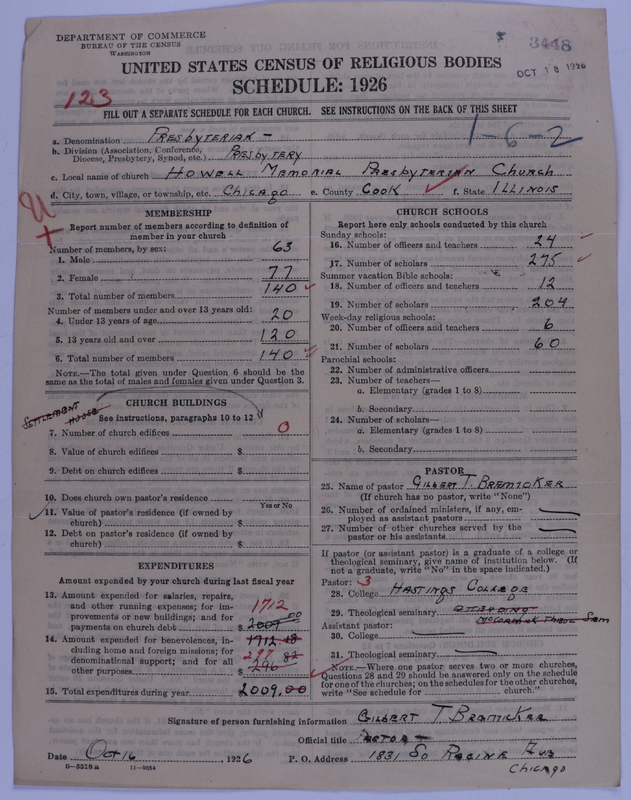 DEPARTMENT OF COMMERCE
BUREAU OF THE CENSUS
WASHINGTON
3448
OCT 18 1926
UNITED STATES CENSUS OF RELIGIOUS BODIES
SCHEDULE: 1926
123
FILL OUT A SEPARATE SCHEDULE FOR EACH CHURCH. SEE INSTRUCTIONS ON THE BACK OF THIS SHEET
1-6-2
a. Denomination PRESBYTERIAN
b. Division (Association, Conference, Diocese, Presbytery, Synod, etc.) PRESBYTERY
c. Local name of church HOWELL MEMORIAL PRESBYTERIAN CHURCH
d. City, town, village, or township, etc. CHICAGO e. County COOK f. State ILLINOIS
MEMBERSHIP
Report number of members according to definition of
member in your church
Number of members, by sex:
1. Male 63
2. Female 77
3. Total number of members 140
Number of members under and over 13 years old:
4. Under 13 years of age 20
5. 13 years old and over 120
6. Total number of members 140
NOTE.—The total given under Question 6 should be
same as the total of males and females given under Question 3.
SETTLEMENT HOUSE
CHURCH BUILDINGS
See instructions, paragraphs 10 to 12
7. Number of church edifices 0
8. Value of church edifices $
9. Debt on church edifices $
10. Does church own pastor's residence
Yes or No
11. Value of pastor's residence (if owned by
church) $
12. Debt on pastor's residence (if owned by
church) $
EXPENDITURES
Amount expended by your church during last fiscal year
13. Amount expended for salaries, repairs,
and other running expenses; for im-
provements or new buildings; and for
payments on church debt $ 1712
2009.00
14. Amount expended for benevolences, in-
cluding home and foreign missions; for
denominational support; and for all
other purposes $ 297
1712 18
296 82
15. Total expenditures during year 2009.00
CHURCH SCHOOLS
Report here only schools conducted by this church
Sunday schools:
16. Number of officers and teachers 24
17. Number of scholars 275
Summer vacation Bible schools:
18. Number of officers and teachers 12
19. Number of scholars 204
Week-day religious schools:
20. Number of officers and teachers 6
21. Number of scholars 60
Parochial schools:
22. Number of administrative officers
23. Number of teachers—
a. Elementary (grades 1 to 8)
b. Secondary
24. Number of scholars—
a. Elementary (grades 1 to 8)
b. Secondary
PASTOR
25. Name of pastor GILBERT T. BREMICKER
(If church has no pastor, write "None")
26. Number of ordained ministers, if any, em-
ployed as assistant pastors
27. Number of other churches served by the
pastor or his assistants
If pastor (or assistant pastor) is a graduate of a college or
theological seminary, give name of institution below. (If
not a graduate, write "No" in the space indicated.)
Pastor: 3
28. College HASTINGS COLLEGE
29. Theological seminary ATTENDING
MCCORMICK THEOL SEM
Assistant pastor:
30. College
31. Theological seminary
NOTE.—Where one pastor serves two or more churches,
Questions 28 and 29 should be answered only on the schedule
for one of the churches; on the schedules for the other churches,
write "See schedule for church."
Signature of person furnishing information GILBERT T. BREMICKER
Official title PASTOR
Date Oct 16 1926 P. O. Address 1831 So RACINE AVE
CHICAGO